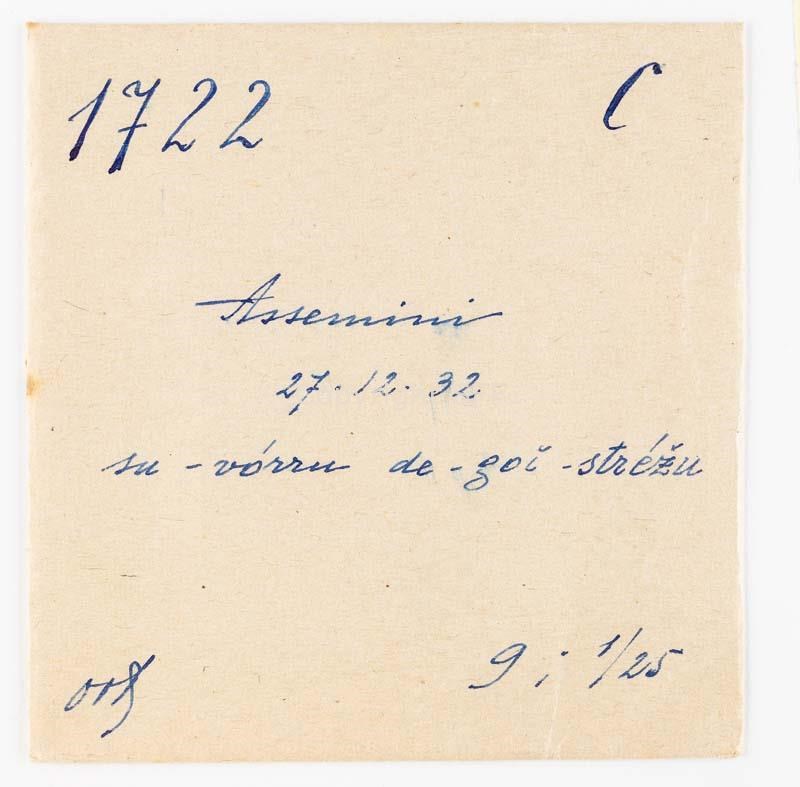 1722 C
Assemini
27.12.32
su-vórru de-goi-stréžu
9; 1/25